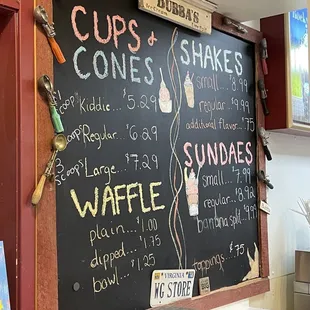 BUBBA'S
CUPS &
CONES
1 scoop Kiddie... 5.29
Regular... 6.29
3 scoops Large... 7.29
WAFFLE
plain... 1.00
dipped... 1.75
bowl... 1.25
SHAKES
small... 8.99
regular... 9.99
additional flavor .75
SUNDAES
small... 7.99
regular
banana split
toppings... .75
VIRGINIA
WG STORE